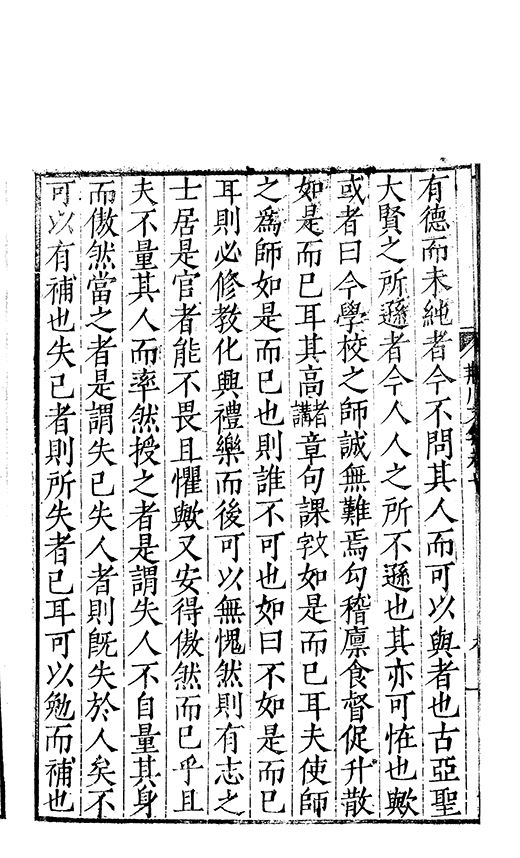 有德而未純者今不問其人而可以與者也古亞聖
大賢之所遜者今人人之所不遜也其亦可恠也歟
或者曰今學校之師誠無難焉勾稽廪食督促升散
如是而已耳其高者講章句課文字如是而已耳夫使師
之爲師如是而已也則誰不可也如曰不如是而已
耳則必修教化興禮樂而後可以無愧然則有志之
士居是官者能不畏且懼歟又安得傲然而已乎且
夫不量其人而率然授之者是謂失人不自量其身
而傲然當之者是謂失己失人者則旣失於人矣不
可以有補也失己者則所失者己耳可以勉而補也